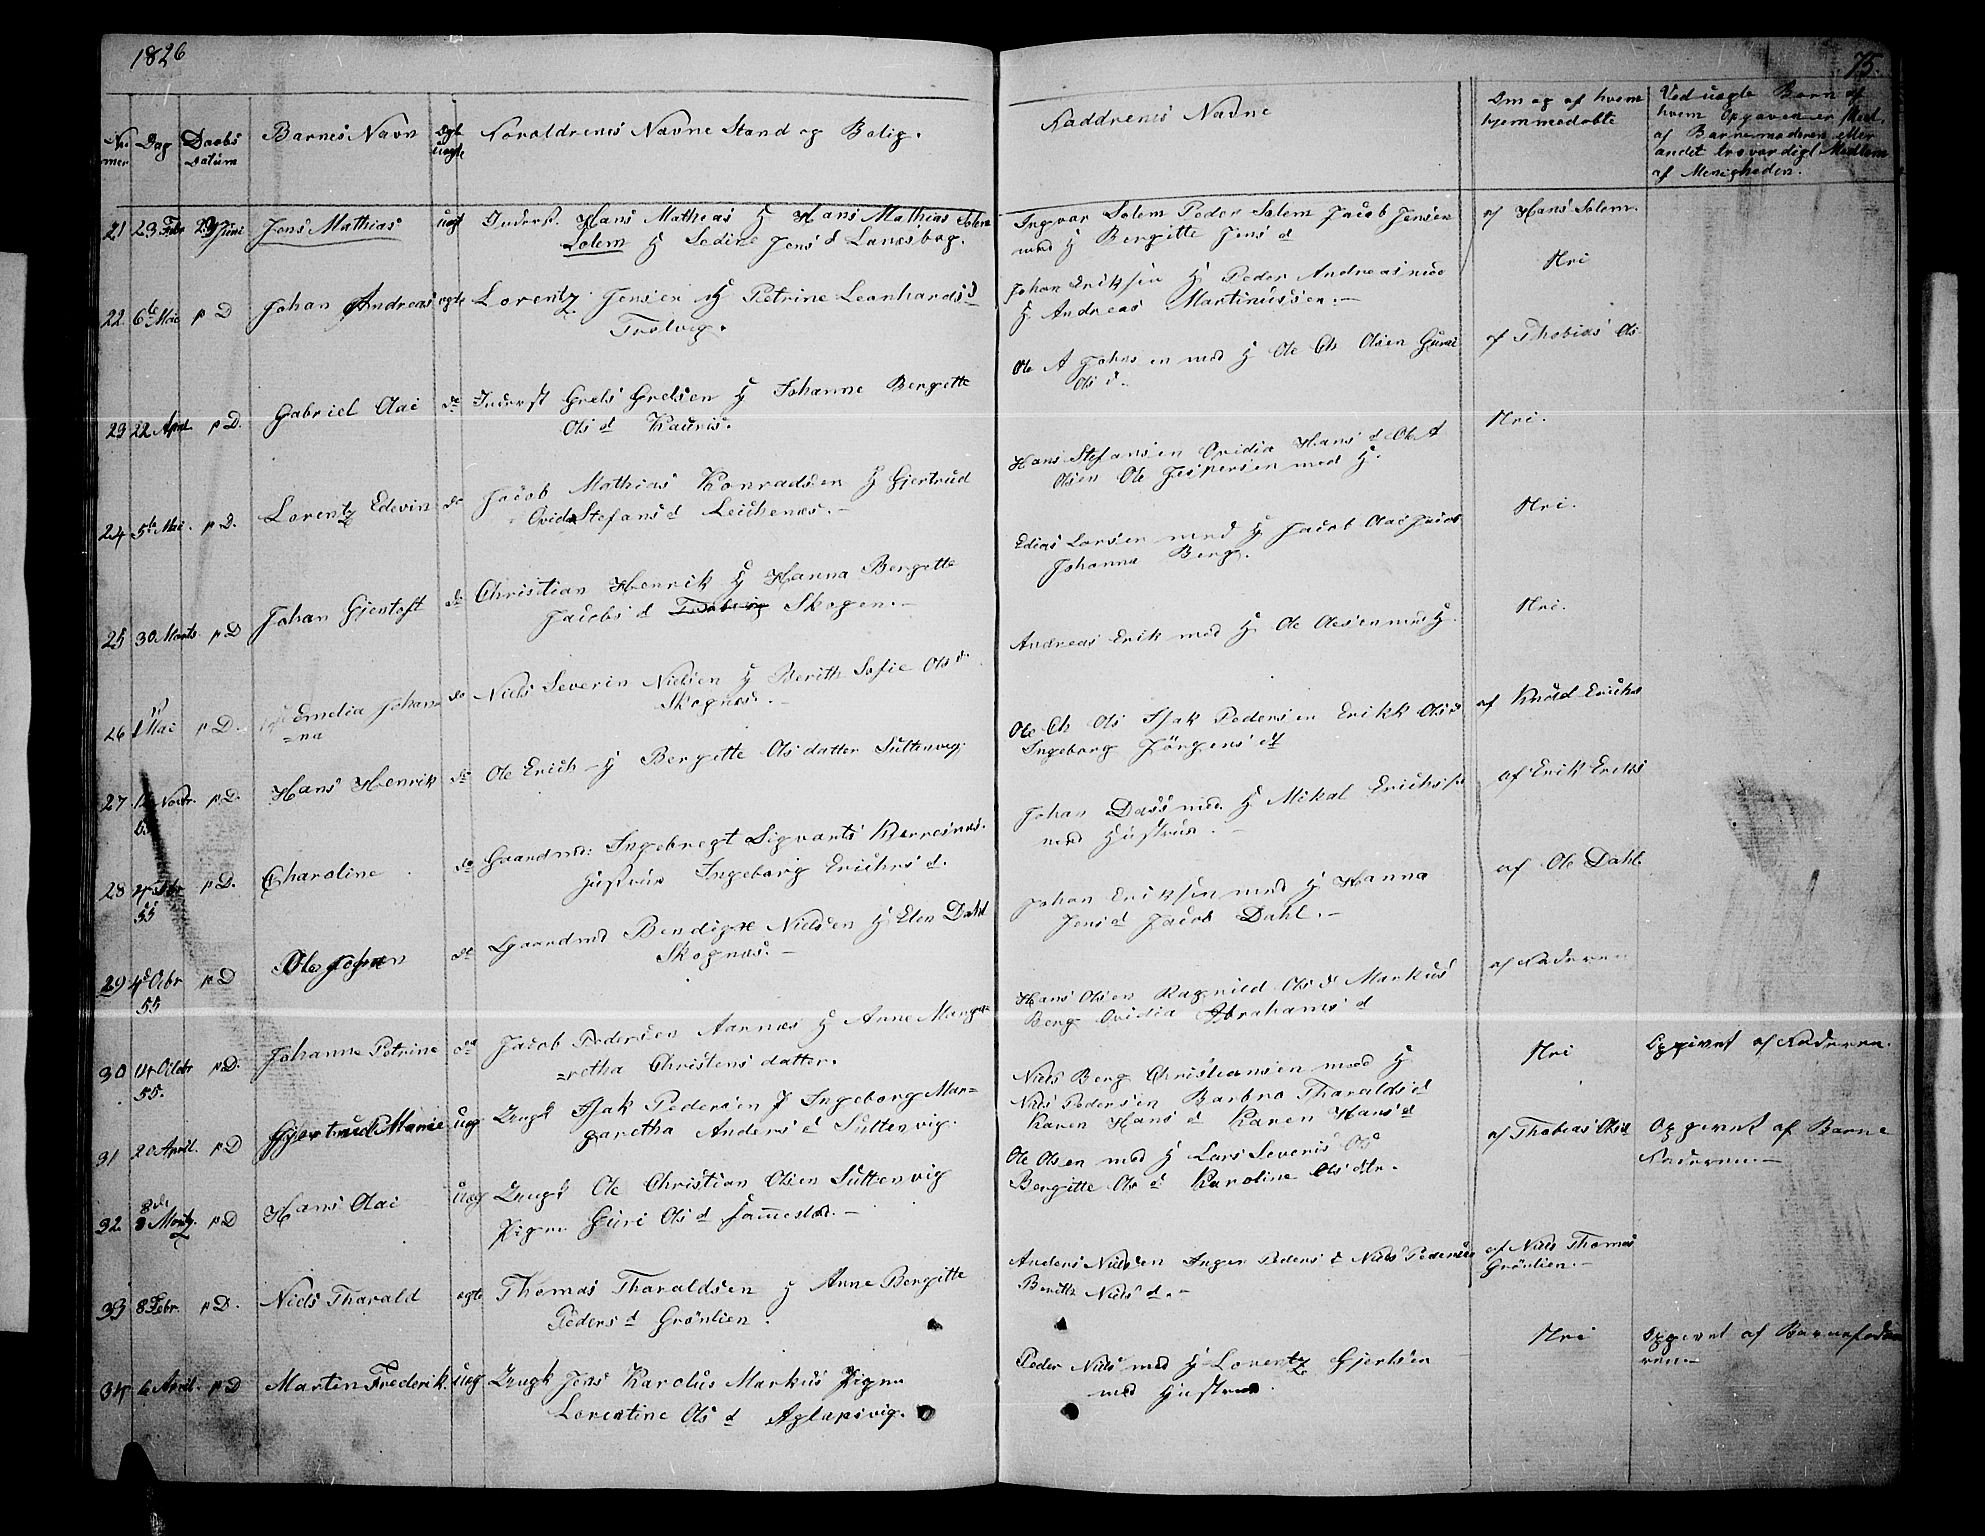 1826
75.
Nu
mer
Dag
Daabs
Datum
Barnes Navn
Ægte
uægte
Foraldrenes Navne Stand og Bolig.
Faddrenes Navne
Om og af hvem
hjemmedøbte
Ved uægte Barn af
hvem Opgaven er Med.
af Barnemoderen eller
andet troværdigt Medlem
af Menigheden.
21 23 Febr 29 Juni Jens Mathias uægt Inderst. Hans Mathias H Hans Mathias Solem
Solem H Sedine Jens d Lanesbog.
Ingvar Solem Peder Solem Jacob Jensen
med H Bergitte Jens d
af Hans Solem.
22 6te Mai p D Johan Andreas ægte Lorentz Jensen H Petrine Leonhards d
Trolvig.
Johan Eriksen H Peder Andreas med
H Andreas Martinussen. —
Nei
23 22 April p D. Gabriel Olai do Inderst Grels Grelsen H Johanne Bergitte
Ols d Kauris.
Ole A Johns en med H Ole Ch Olsen Guri
Ols d.
af Thobias Ols
24 5te Mai. p D. Lorentz Edevin do Jacob Mathias Konradsen H Gjertrud
Ovida Stefans d Leichenes. —
Hans Stefansen Ovidia Hans d Ole A
Olsen Ole Jespersen med H.
Nei.
25 30 Marts p D Johan Gjertoft do Christian Henrik H Hanna Bergitte
Jacobs d Skogen. —
Edias Larsen med H Jacob Olai Jacob
Johanna Berg.
Nei.
26 1 Mai p D. Emelia Johan
= na do Niels Severin Nielsen H Berith Sofie Ols d
Skognes. —
Andreas Erik med H Ole Olesen med H.
Nei.
27 p D. Hans Henrik do Ole Erich H Bergitte Olsdatter Sultenvig.
Ole Ch Ols Isak Pedersen Erikk Ols d
Ingeborg Jörgens d
af Knold Erichs
28 p D. Charoline do Gaardmd: Ingebregt Sigvarts Kierresnes.
Hustrue Ingeborg Erichs d.
55
Johan Dass med H Mikal Erichs
med Hustrue. —
af Erik Eriks
29 4d Octbr p D Ole Johan do Gaardmd Bendigte Nielsen H Elen Dahl
Skognes. —
55
Johan Eriksen med H Hanna
Jens d Jacob Dahl. —
af Ole Dahl
30 14 Octobr p D. Johanne Petrine do Jacob Pedersen Aarnes H Anne Marga
=retha Christens datter.
55.
Hans Olsen Ragnild Ols d Markus
Berg Ovidia Abrahams d
af Faderen
31 20 April. p D Gjertrud Marie uæg Ungk Isak Pedersen P Ingeborg Mar=
garetha Anders d Sultenvig.
Niels Berg Christiansen med H
Nils Pedersen Barbro Tharalds d
Karen Hans d Karen Hans d
Nei
Opgivet af Faderen.
32. 8de Martz. p D Hans Olai uæg Ungk Ole Christian Olsen Sultenvig
Pigen Guri Ols d
Ole Olsen med H Lars Severis Ols
Bergitte Ols d Karoline Ols dtr.
af Thobias Olsen
Opgivet af Barne
Faderen. —
33 8 Febr. p D. Niels Tharald ægte Thomas Tharaldsen H Anne Bergitte
Peders d Grönlien.
Anders Nielsen Inger Peders d Niels Pedersen
Berith Niels d. —
af Niels Thomas
Grönlien. —
34 6 April. p D Martin Frederik. uæg Ungk Jens Karolus Markus Pigen
Lorentine Ols d Aglapsvig.
Peder Niels med H Lorentz Gjertsen
med Hustrue.
Nei
Opgivet af Barnefade
ren. —